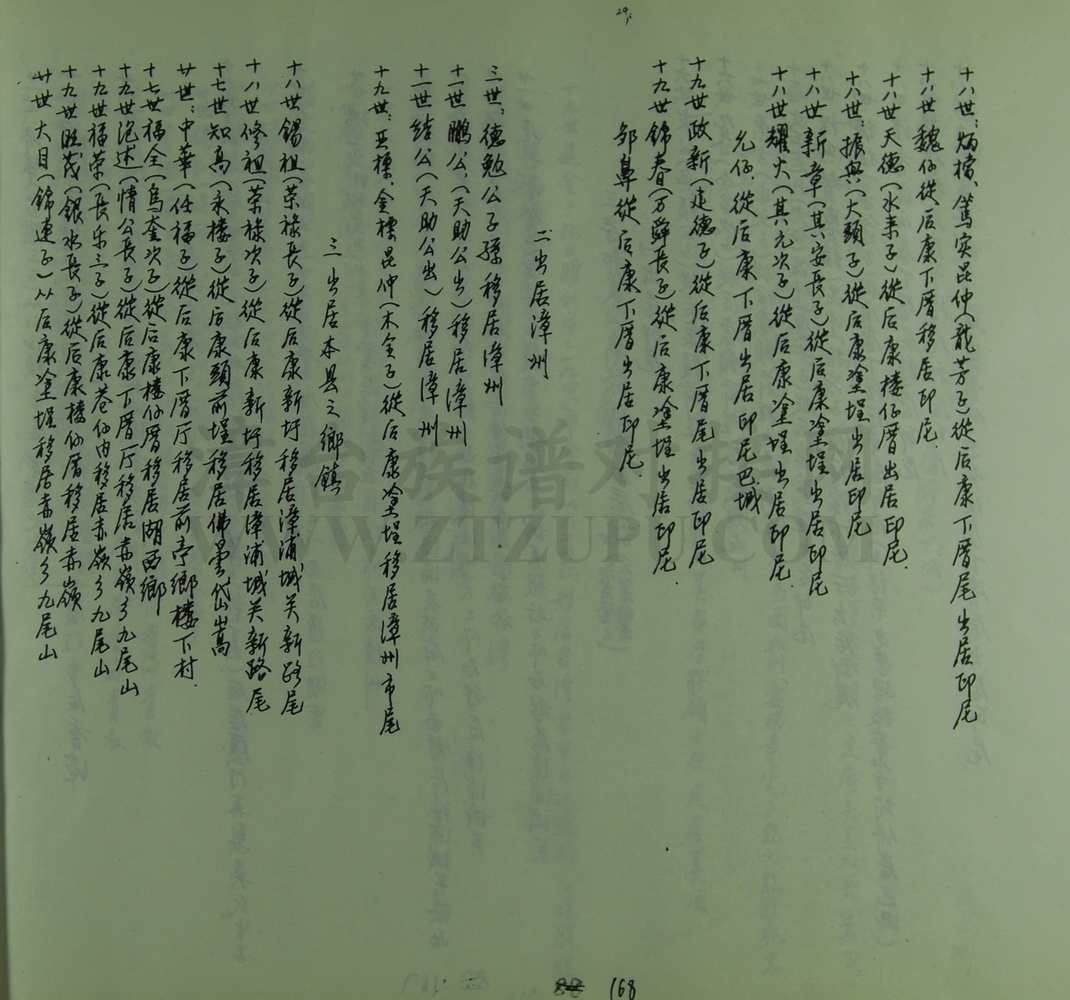 十八世：炳檣、篤实昆仲(龍芳子)從后康下厝尾出居印尼
十八世魏仔從后康下厝移居印尼.
十八世天德(水来子)從后康楼仔厝出居印尼.
十八世：振興(大頭子)從后康塗埕出居印尼
十八世新章(其安長子)從后康塗埕出居印尼
十八世耀火(其元次子)從后康塗埕出居印尼.
允仔.從后康下厝出居印尼巴城
十九世政新(定德子)從后康下厝尾出居印尼
十九世錦春(万舜長子)從后康塗埕出居印尼.
邹鼻從后康下厝出居印尼.
二出居漳州
三世：德勉公子孫移居漳州
十一世鵬公(天助公出)移居漳州
十一世结公(天助公出)移居漳州
十九世：亚標、金標昆仲(木全子)從后康塗埕移居漳州市尾
三出居本县之鄉鎮
十八世錫祖(荣禄長子)從后康新圩移居漳浦城关新路尾
十八世修祖(荣禄次子)從后康新圩移居漳浦城关新路尾
十七世知高(永楼子)從后康頭前埕移居佛曇岱嵩
廿世：中華(任福子)從后康下厝厅移居前亭鄉楼下村.
十七世福全(烏奎次子)從后康楼仔厝移居湖西鄉
十九世泡述(情公長子)從后康下厝厅移居赤嶺乡九尾山
十九世福荣(長乐三子)從后康巷仔内移居赤嶺乡九尾山
十九世旺茂(銀水長子)從后康楼仔厝移居赤嶺
廿世大目(錦連子)从后康塗埕移居赤嶺乡九尾山
168
漳台族谱对接
WWW.ZTZUPU.COM